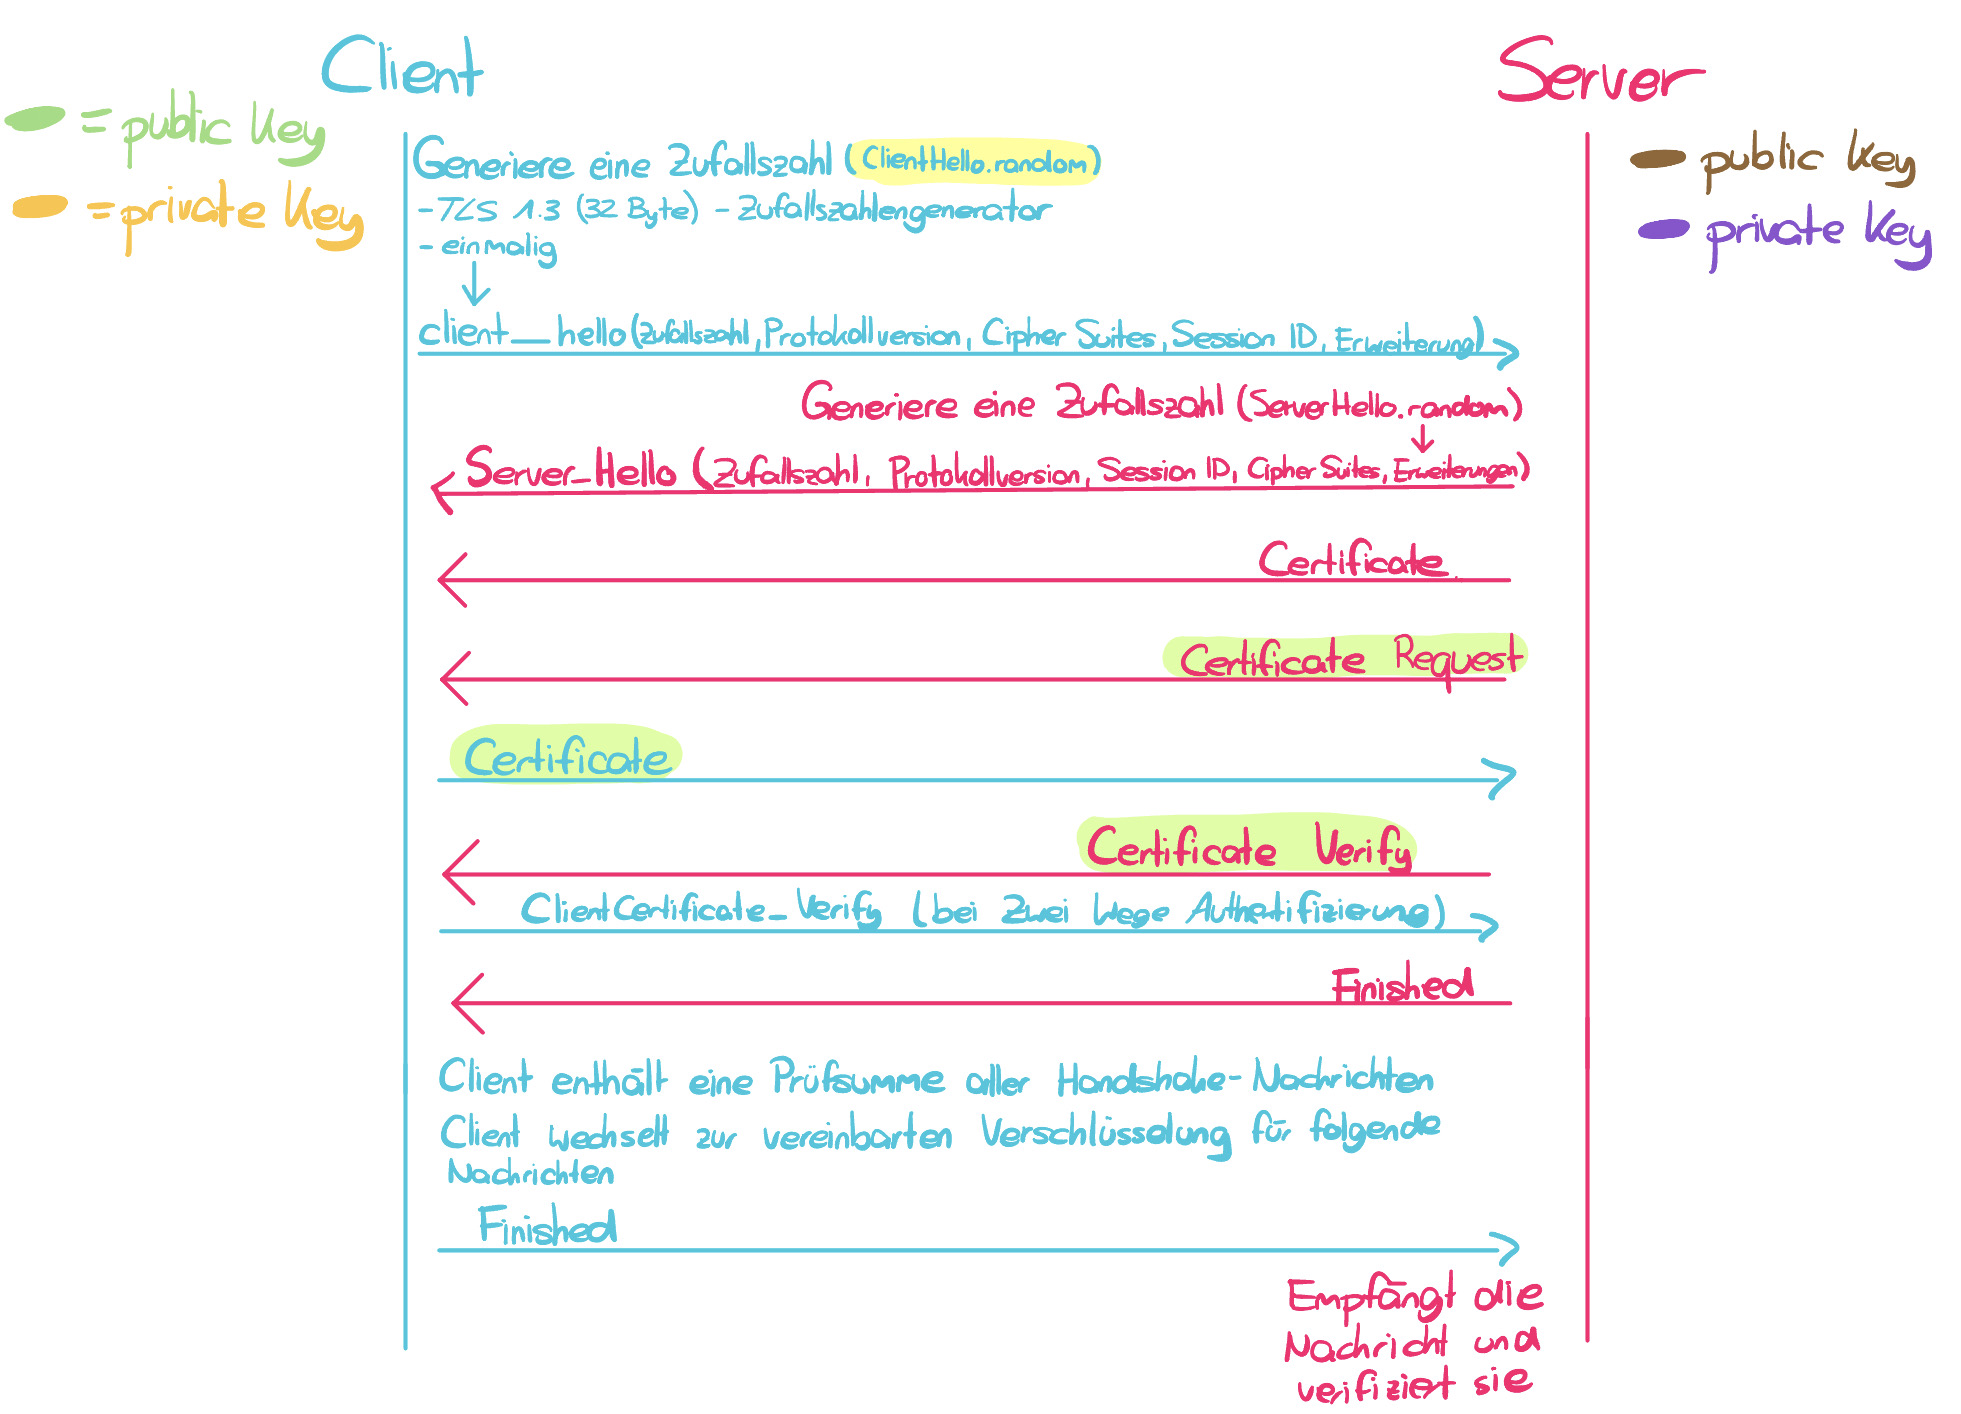 Client
Server
= public Key
= private Key
public Key
private Key
Generiere eine Zufallszahl (ClientHello.random)
- TLS 1.3 (32 Byte) - Zufallszahlengenerator
- einmalig
client_hello (Zufallszahl, Protokollversion, Cipher Suites, Session ID, Erweiterung)
Generiere eine Zufallszahl (ServerHello.random)
Server_Hello (Zufallszahl, Protokollversion, Session ID, Cipher Suites, Erweiterungen)
Certificate
Certificate Request
Certificate
Certificate Verify
ClientCertificate_Verify (bei Zwei Wege Authentifizierung)
Finished
Client enthält eine Prüfsumme aller Handshake-Nachrichten
Client wechselt zur vereinbarten Verschlüsselung für folgende
Nachrichten
Finished
Empfängt die
Nachricht und
verifiziert sie